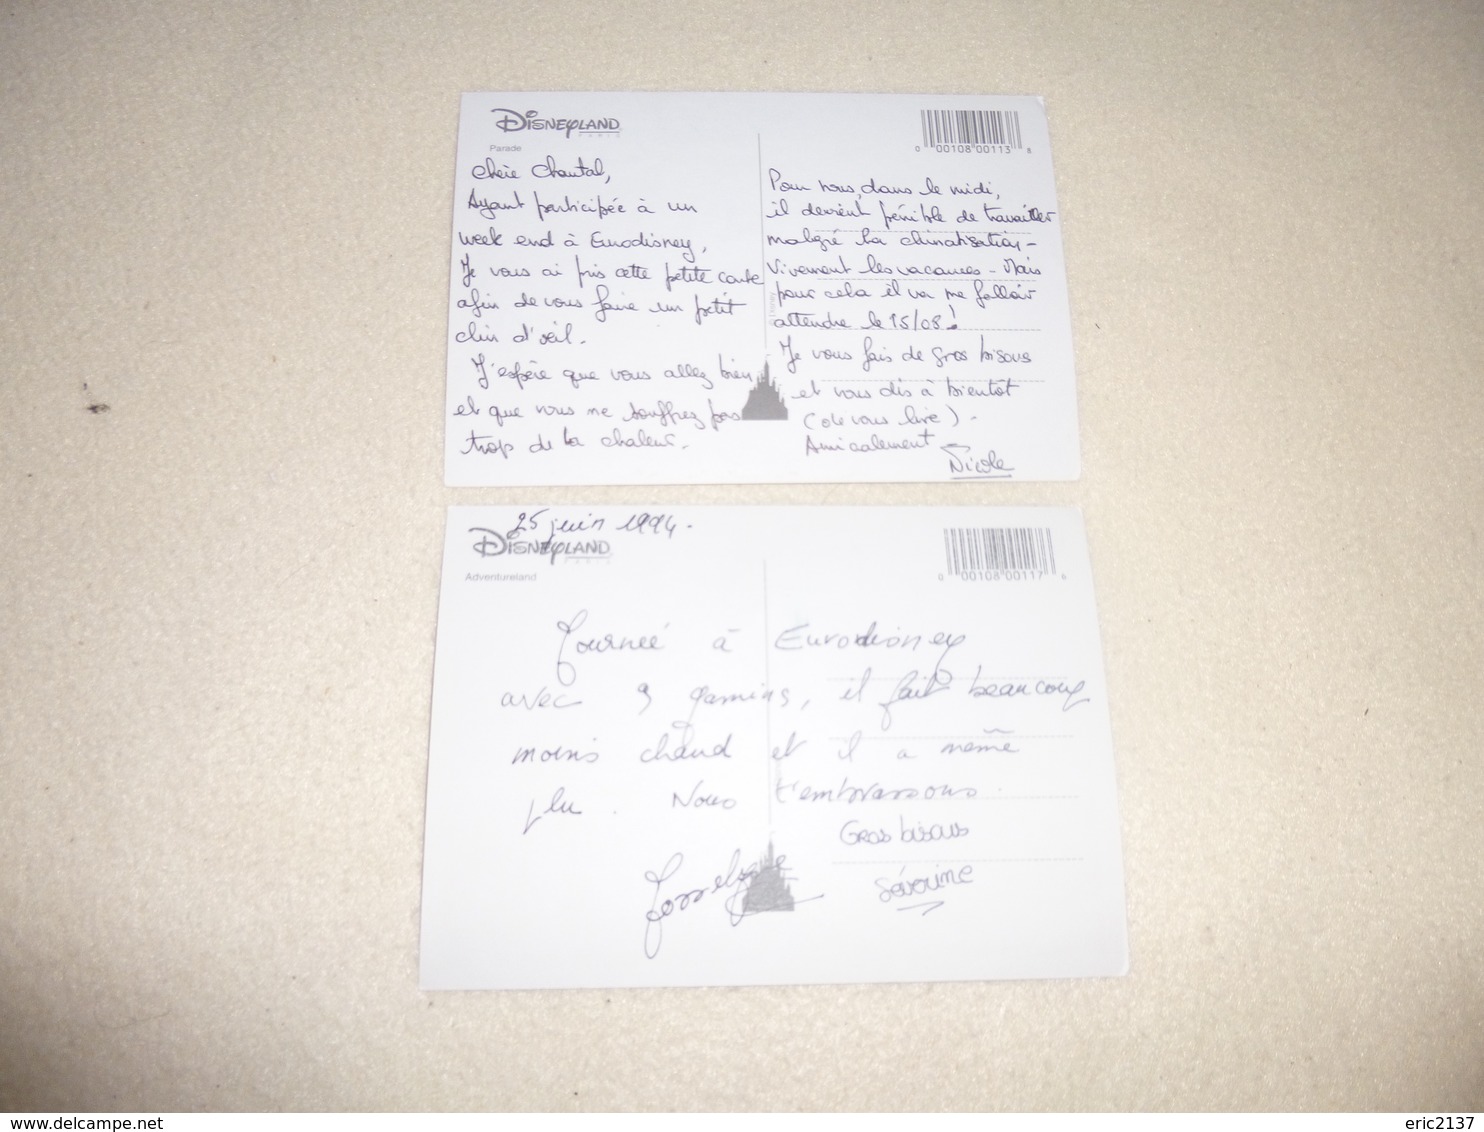 DISNEYLAND
PARIS
Parade
0 00108 00113 8
Chère Chantal,
Ayant participée à un
week end à Eurodisney,
Je vous ai pris cette petite carte
afin de vous faire un petit
clin d'œil.
J'espère que vous allez bien
et que vous ne souffrez pas
trop de la chaleur.
Pour nous, dans le midi,
il devient pénible de travailler
malgré la climatisation -
Vivement les vacances - Mais
pour cela il va me falloir
attendre le 15/08!
Je vous fais de gros bisous
et vous dis à bientôt
(de vous lire) -
Amicalement
Nicole
© Disney
25 juin 1994.
DISNEYLAND
PARIS
Adventureland
0 00108 00117 6
Journée à Eurodisney
avec 3 gamins, il fait beaucoup
moins chaud et il a même
plu. Nous t'embrassons.
Gros bisous
Séverine
delcampe.net
eric2137